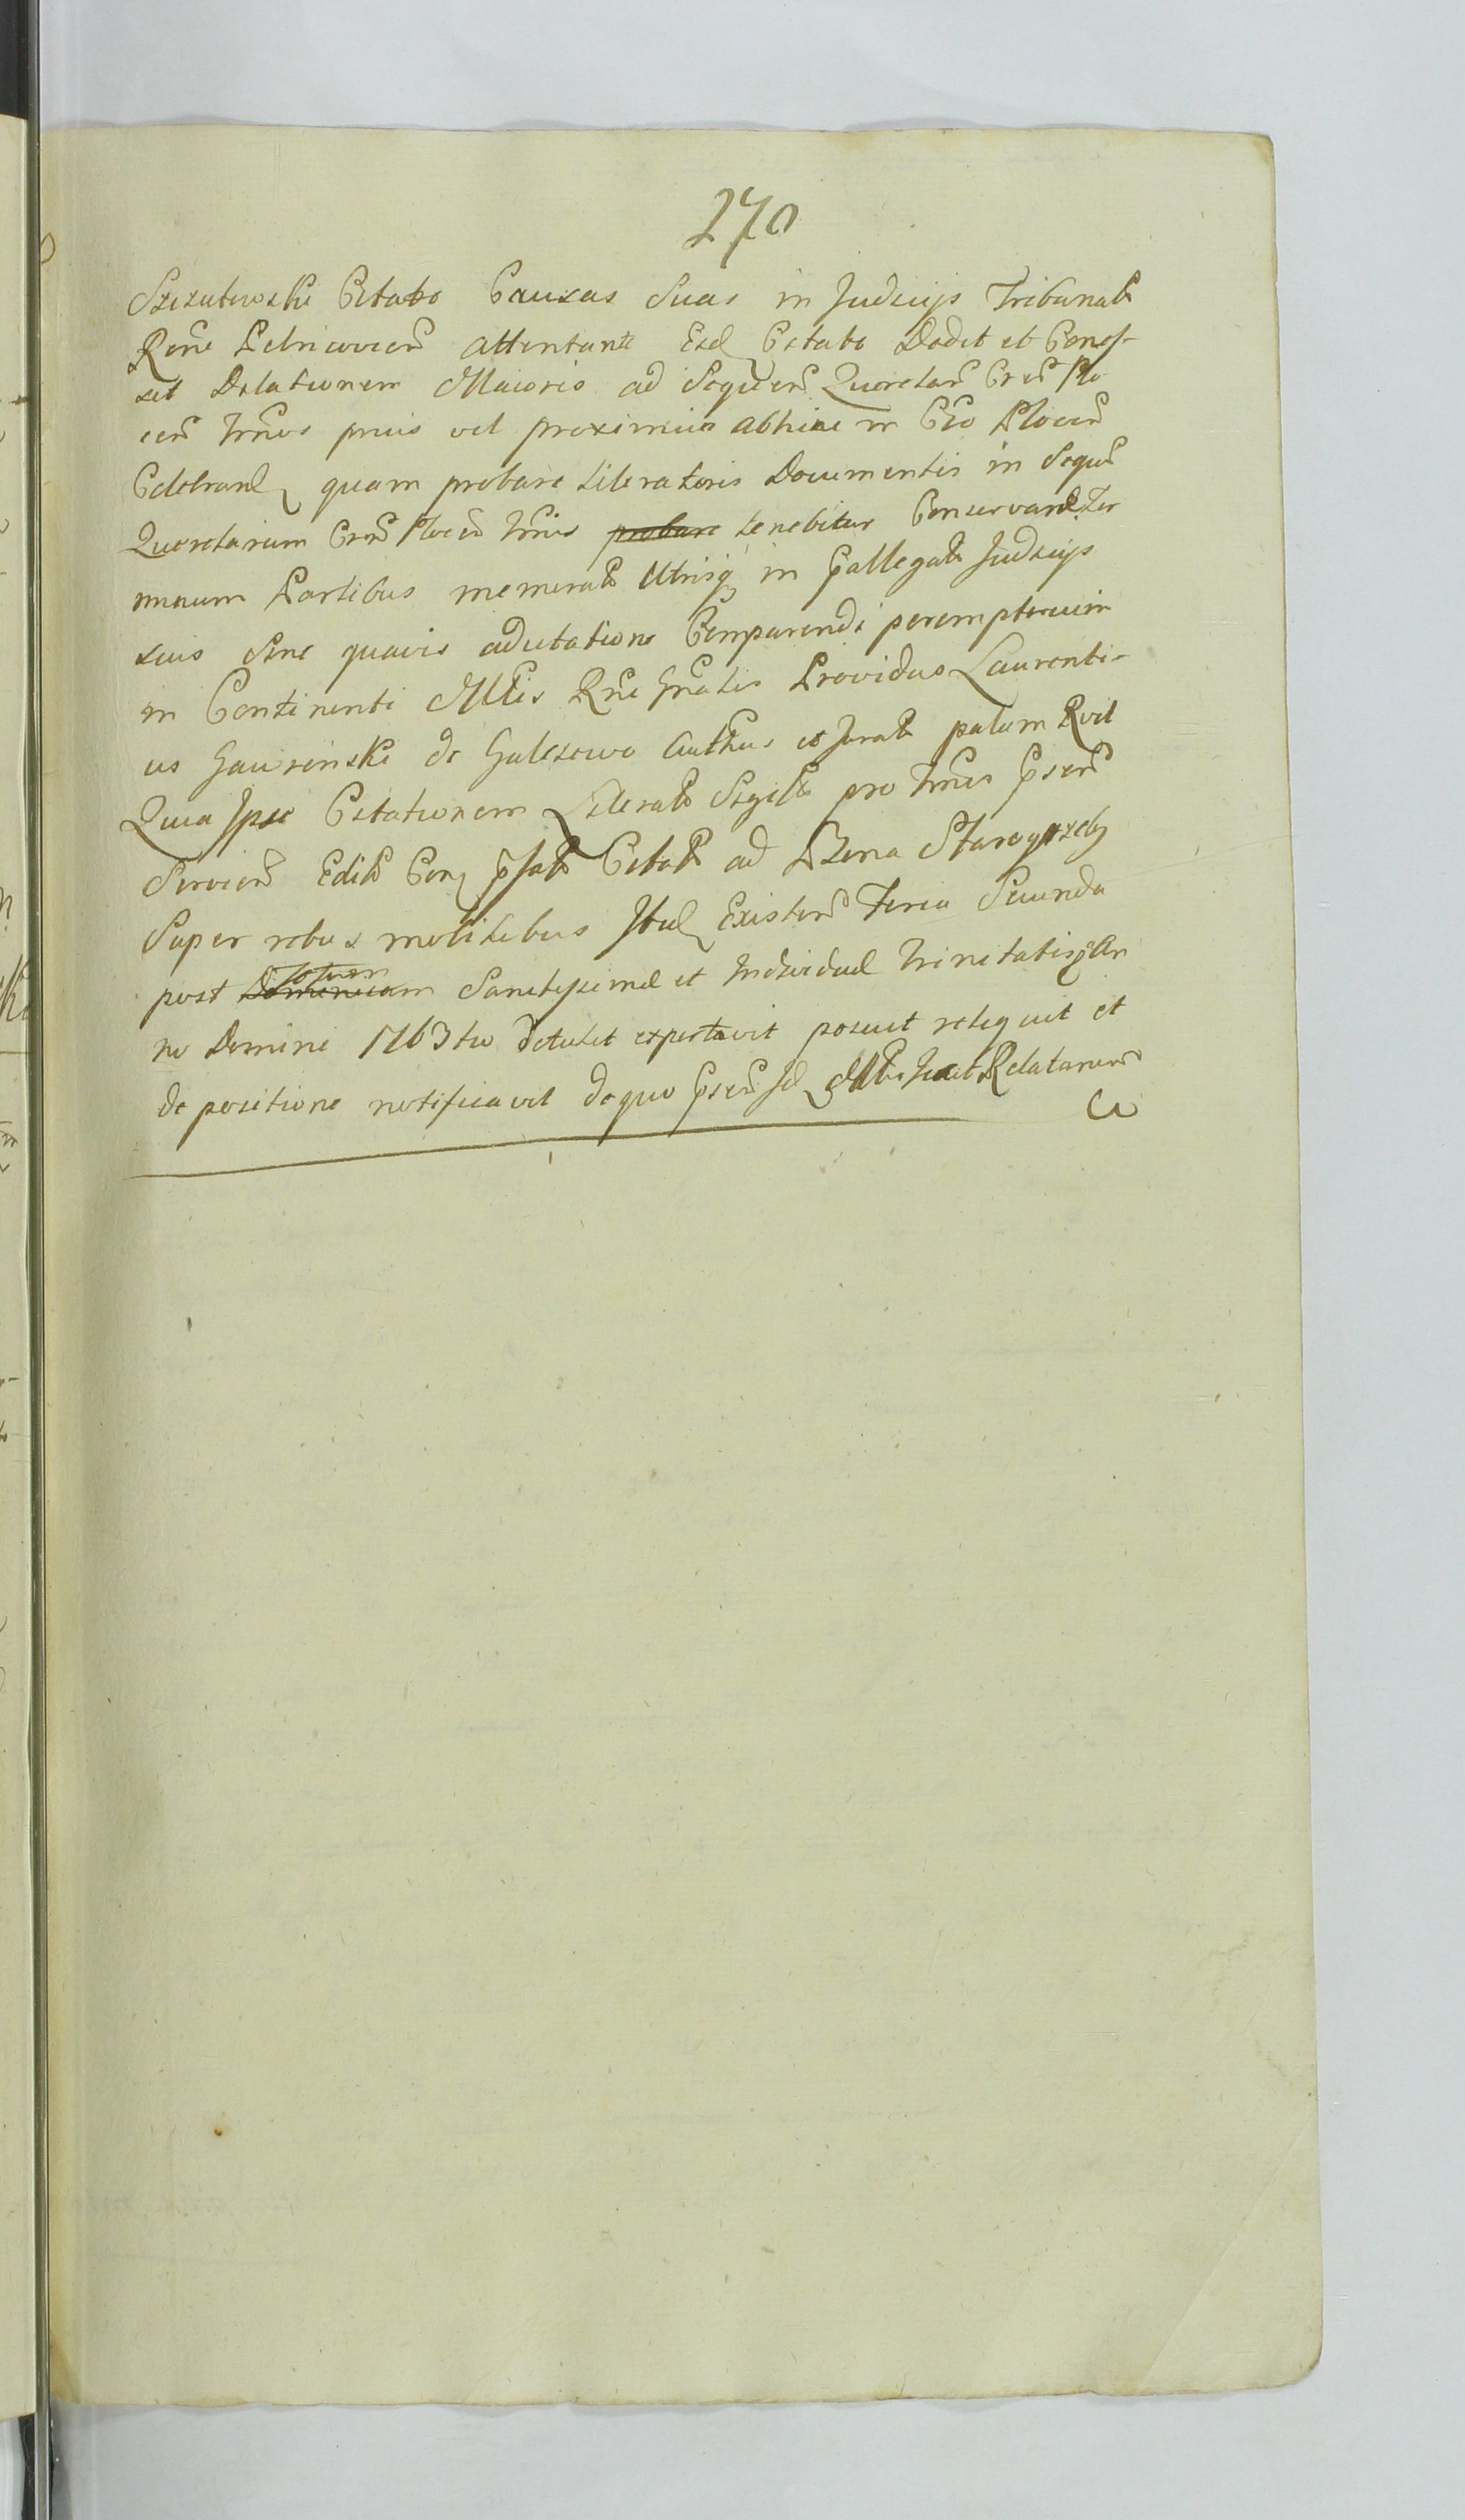 270
Szczutowski Citato Causas Suas in Judicijs Tribunal
Rnne Petricovien attentant Eid Citato Dedit et Conces-
sit Dilationem Maioris ad Sequen Querelar Cren Plo
cen Trnos prius vel proximius abhinc in Cto Plocen
Celebrand quam probare Literatoris Documentis in Sequen
Querelarum Cren Plocen Trnis probare tenebitur Conservand Ter
minum Partibus memorat Utrisq in Pallegat Judicijs
suis Sine quavis aducitatione Comparendi peremptorium
in Continenti Mtis Rne Gnalis Providus Laurenti-
us Gawinski de Galczewo Authus et Jurat palam Rvit
Quia Ipse Citationem Literal Sigill pro Trnis Psen
Servien Edit Con Psat Citat ad Bona Starogrzeby
Super rebus mobilibus Ibid Existen Feria Secunda
post Dominicam Festum Sanctissimae et Individuae Trinitatis An
no Domini 1763tio detulit exportavit posuit reliquit et
de positione notificavit de quo Psen Sd Mtis fecit Relationem